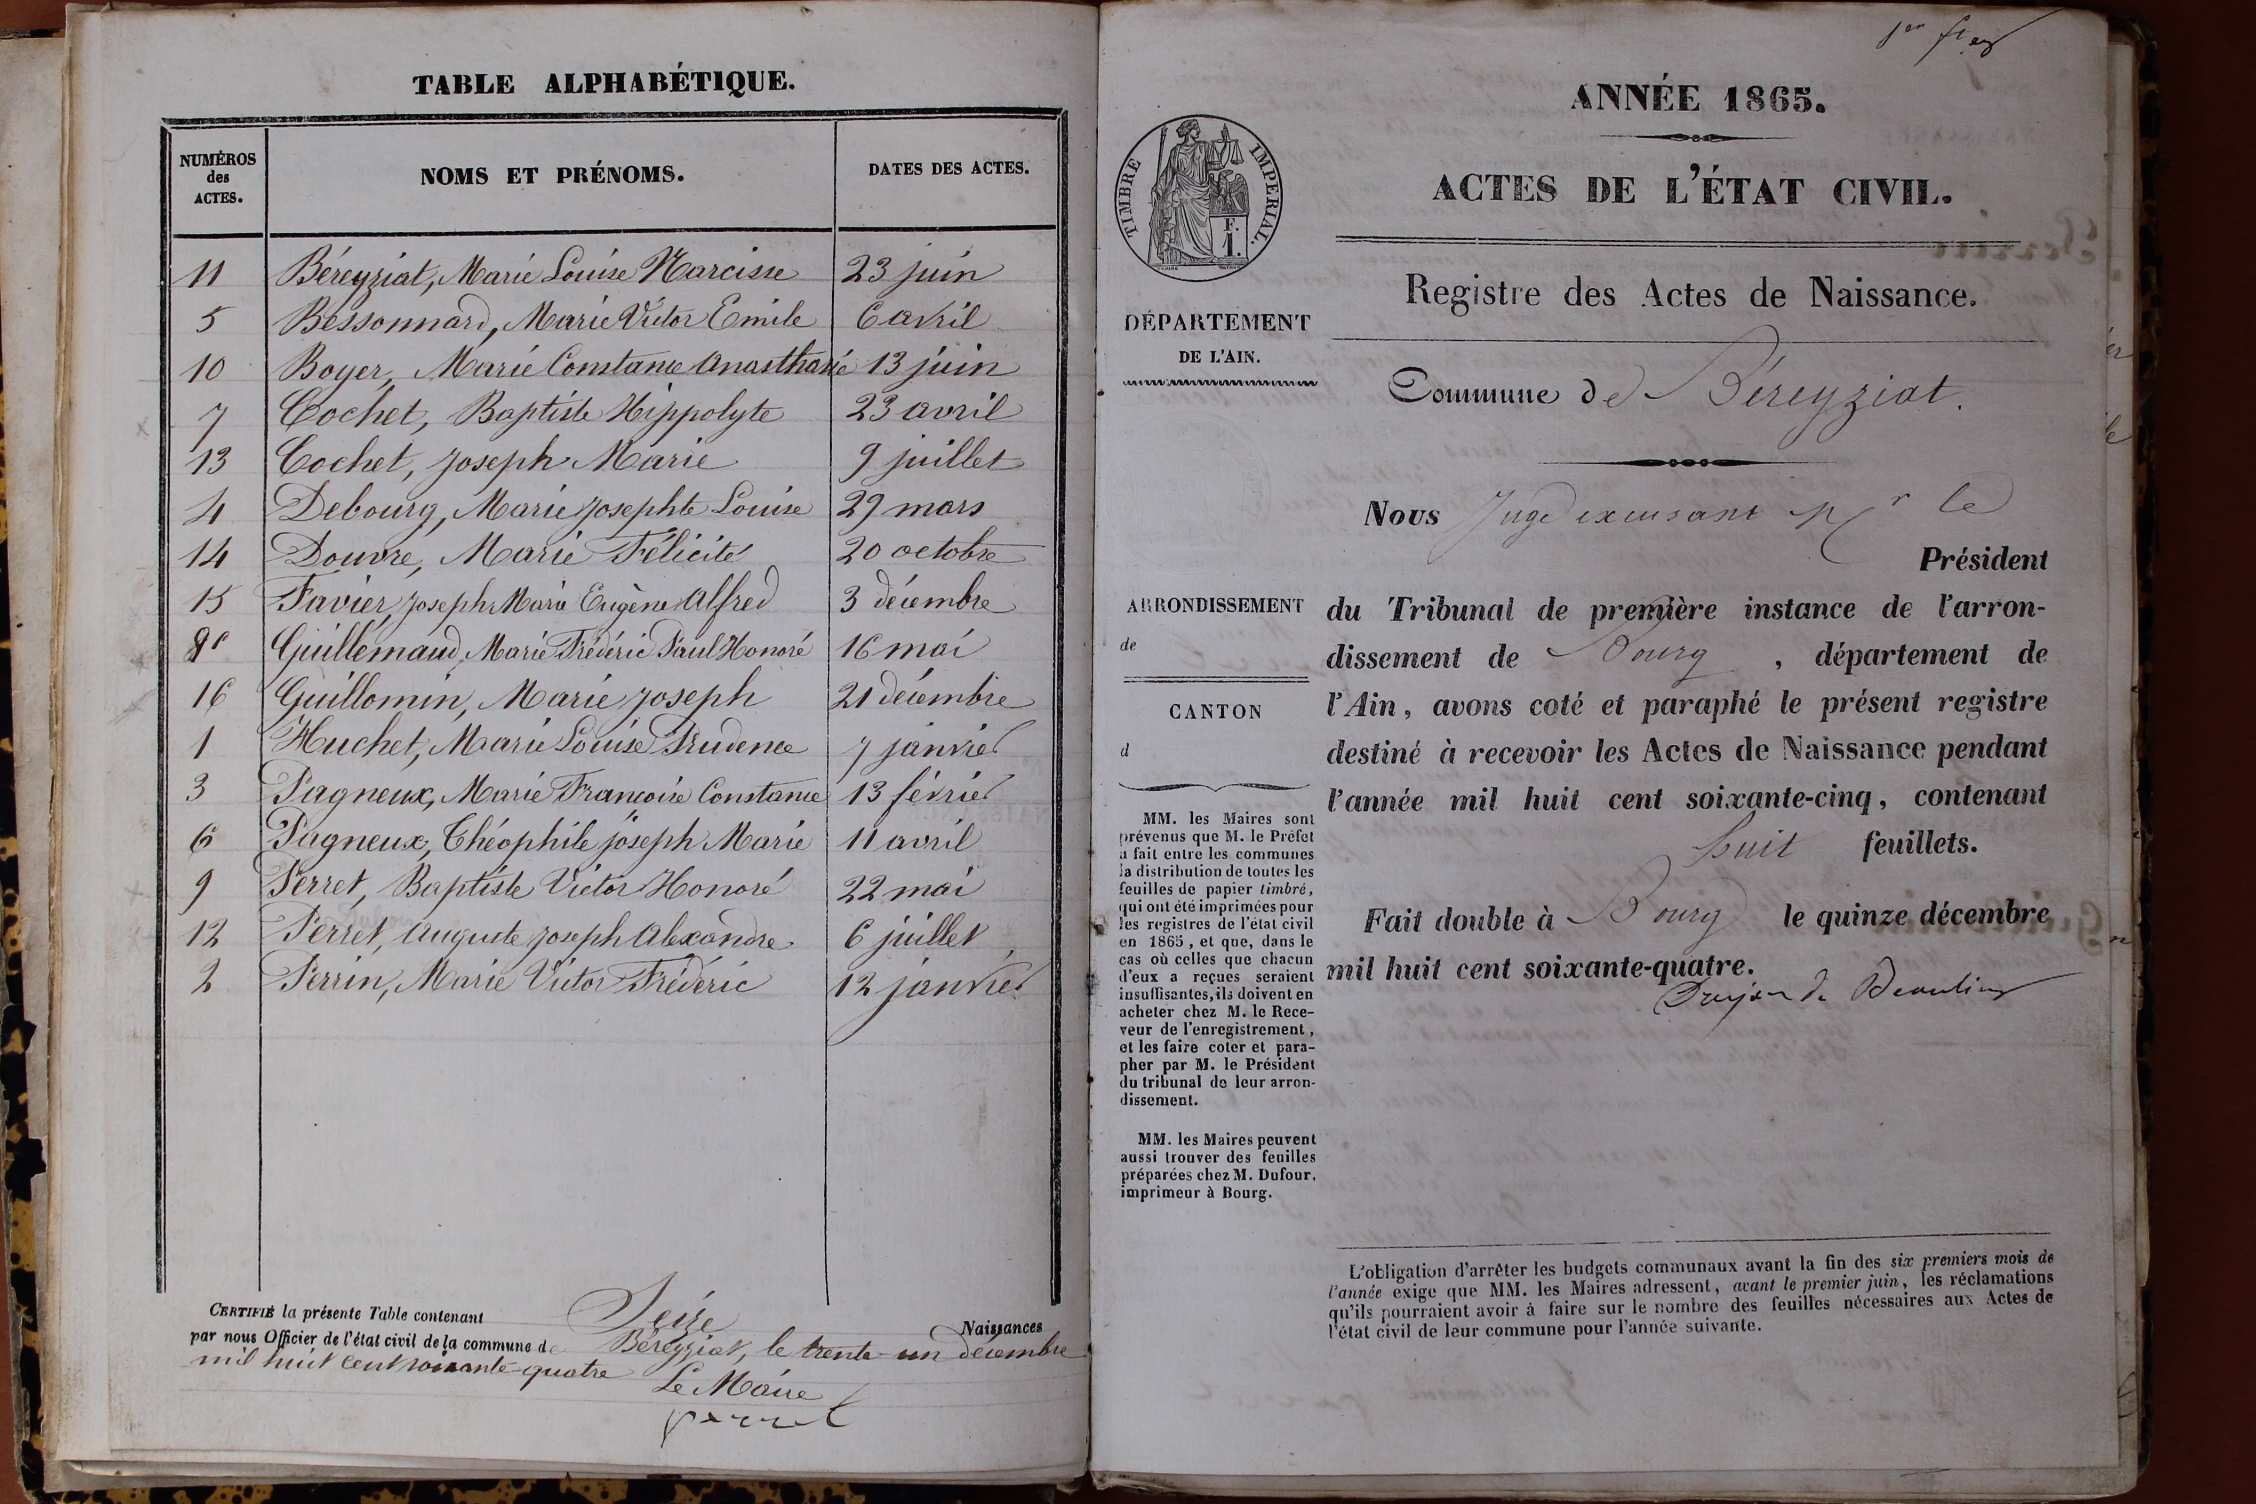 TABLE ALPHABÉTIQUE.
NUMÉROS des ACTES. NOMS ET PRÉNOMS. DATES DES ACTES.
11 Béreyziat, Marie Louise Narcisse 23 juin
5 Bessonnard, Marie Victor Emile 6 avril
10 Boyer, Marie Constance Anasthasie 13 juin
7 Cochet, Baptiste Hippolyte 23 avril
13 Cochet, Joseph Marie 9 juillet
4 Debourg, Marie Josephte Louise 29 mars
14 Douvre, Marie Félicité 20 octobre
15 Favier, Joseph Marie Eugène Alfred 3 décembre
8 Guillemaud, Marie Frédéric Paul Honoré 16 mai
16 Guillomin, Marie Joseph 21 décembre
1 Huchet, Marie Louise Prudence 7 janvier
3 Pagneux, Marie Francoise Constance 13 février
6 Pagneux, Théophile Joseph Marie 11 avril
9 Perret, Baptiste Victor Honoré 22 mai
12 Perret, Auguste Joseph Alexandre 6 juillet
2 Perrin, Marie Victor Frédéric 12 janvier
CERTIFIÉ la présente Table contenant Seize Naissances
par nous Officier de l'état civil de la commune de Béreyziat, le trente-un décembre
mil huit cent soixante-quatre
Le Maire
Perret
1er
ANNÉE 1865.
ACTES DE L'ÉTAT CIVIL.
TIMBRE IMPERIAL.
F.
1.
Registre des Actes de Naissance.
DÉPARTEMENT
DE L'AIN.
Commune de Béreyziat.
Nous Juge excusant Mr le
Président
ARRONDISSEMENT
de
CANTON
d
du Tribunal de première instance de l'arron-
dissement de Bourg, département de
l'Ain, avons coté et paraphé le présent registre
destiné à recevoir les Actes de Naissance pendant
l'année mil huit cent soixante-cinq, contenant
huit feuillets.
Fait double à Bourg le quinze décembre
mil huit cent soixante-quatre.
MM. les Maires sont
prévenus que M. le Préfet
a fait entre les communes
la distribution de toutes les
feuilles de papier timbré,
qui ont été imprimées pour
les registres de l'état civil
en 1865, et que, dans le
cas où celles que chacun
d'eux a reçues seraient
insuffisantes, ils doivent en
acheter chez M. le Rece-
veur de l'enregistrement,
et les faire coter et para-
pher par M. le Président
du tribunal de leur arron-
dissement.
MM. les Maires peuvent
aussi trouver des feuilles
préparées chez M. Dufour,
imprimeur à Bourg.
L'obligation d'arrêter les budgets communaux avant la fin des six premiers mois de
l'année exige que MM. les Maires adressent, avant le premier juin, les réclamations
qu'ils pourraient avoir à faire sur le nombre des feuilles nécessaires aux Actes de
l'état civil de leur commune pour l'année suivante.